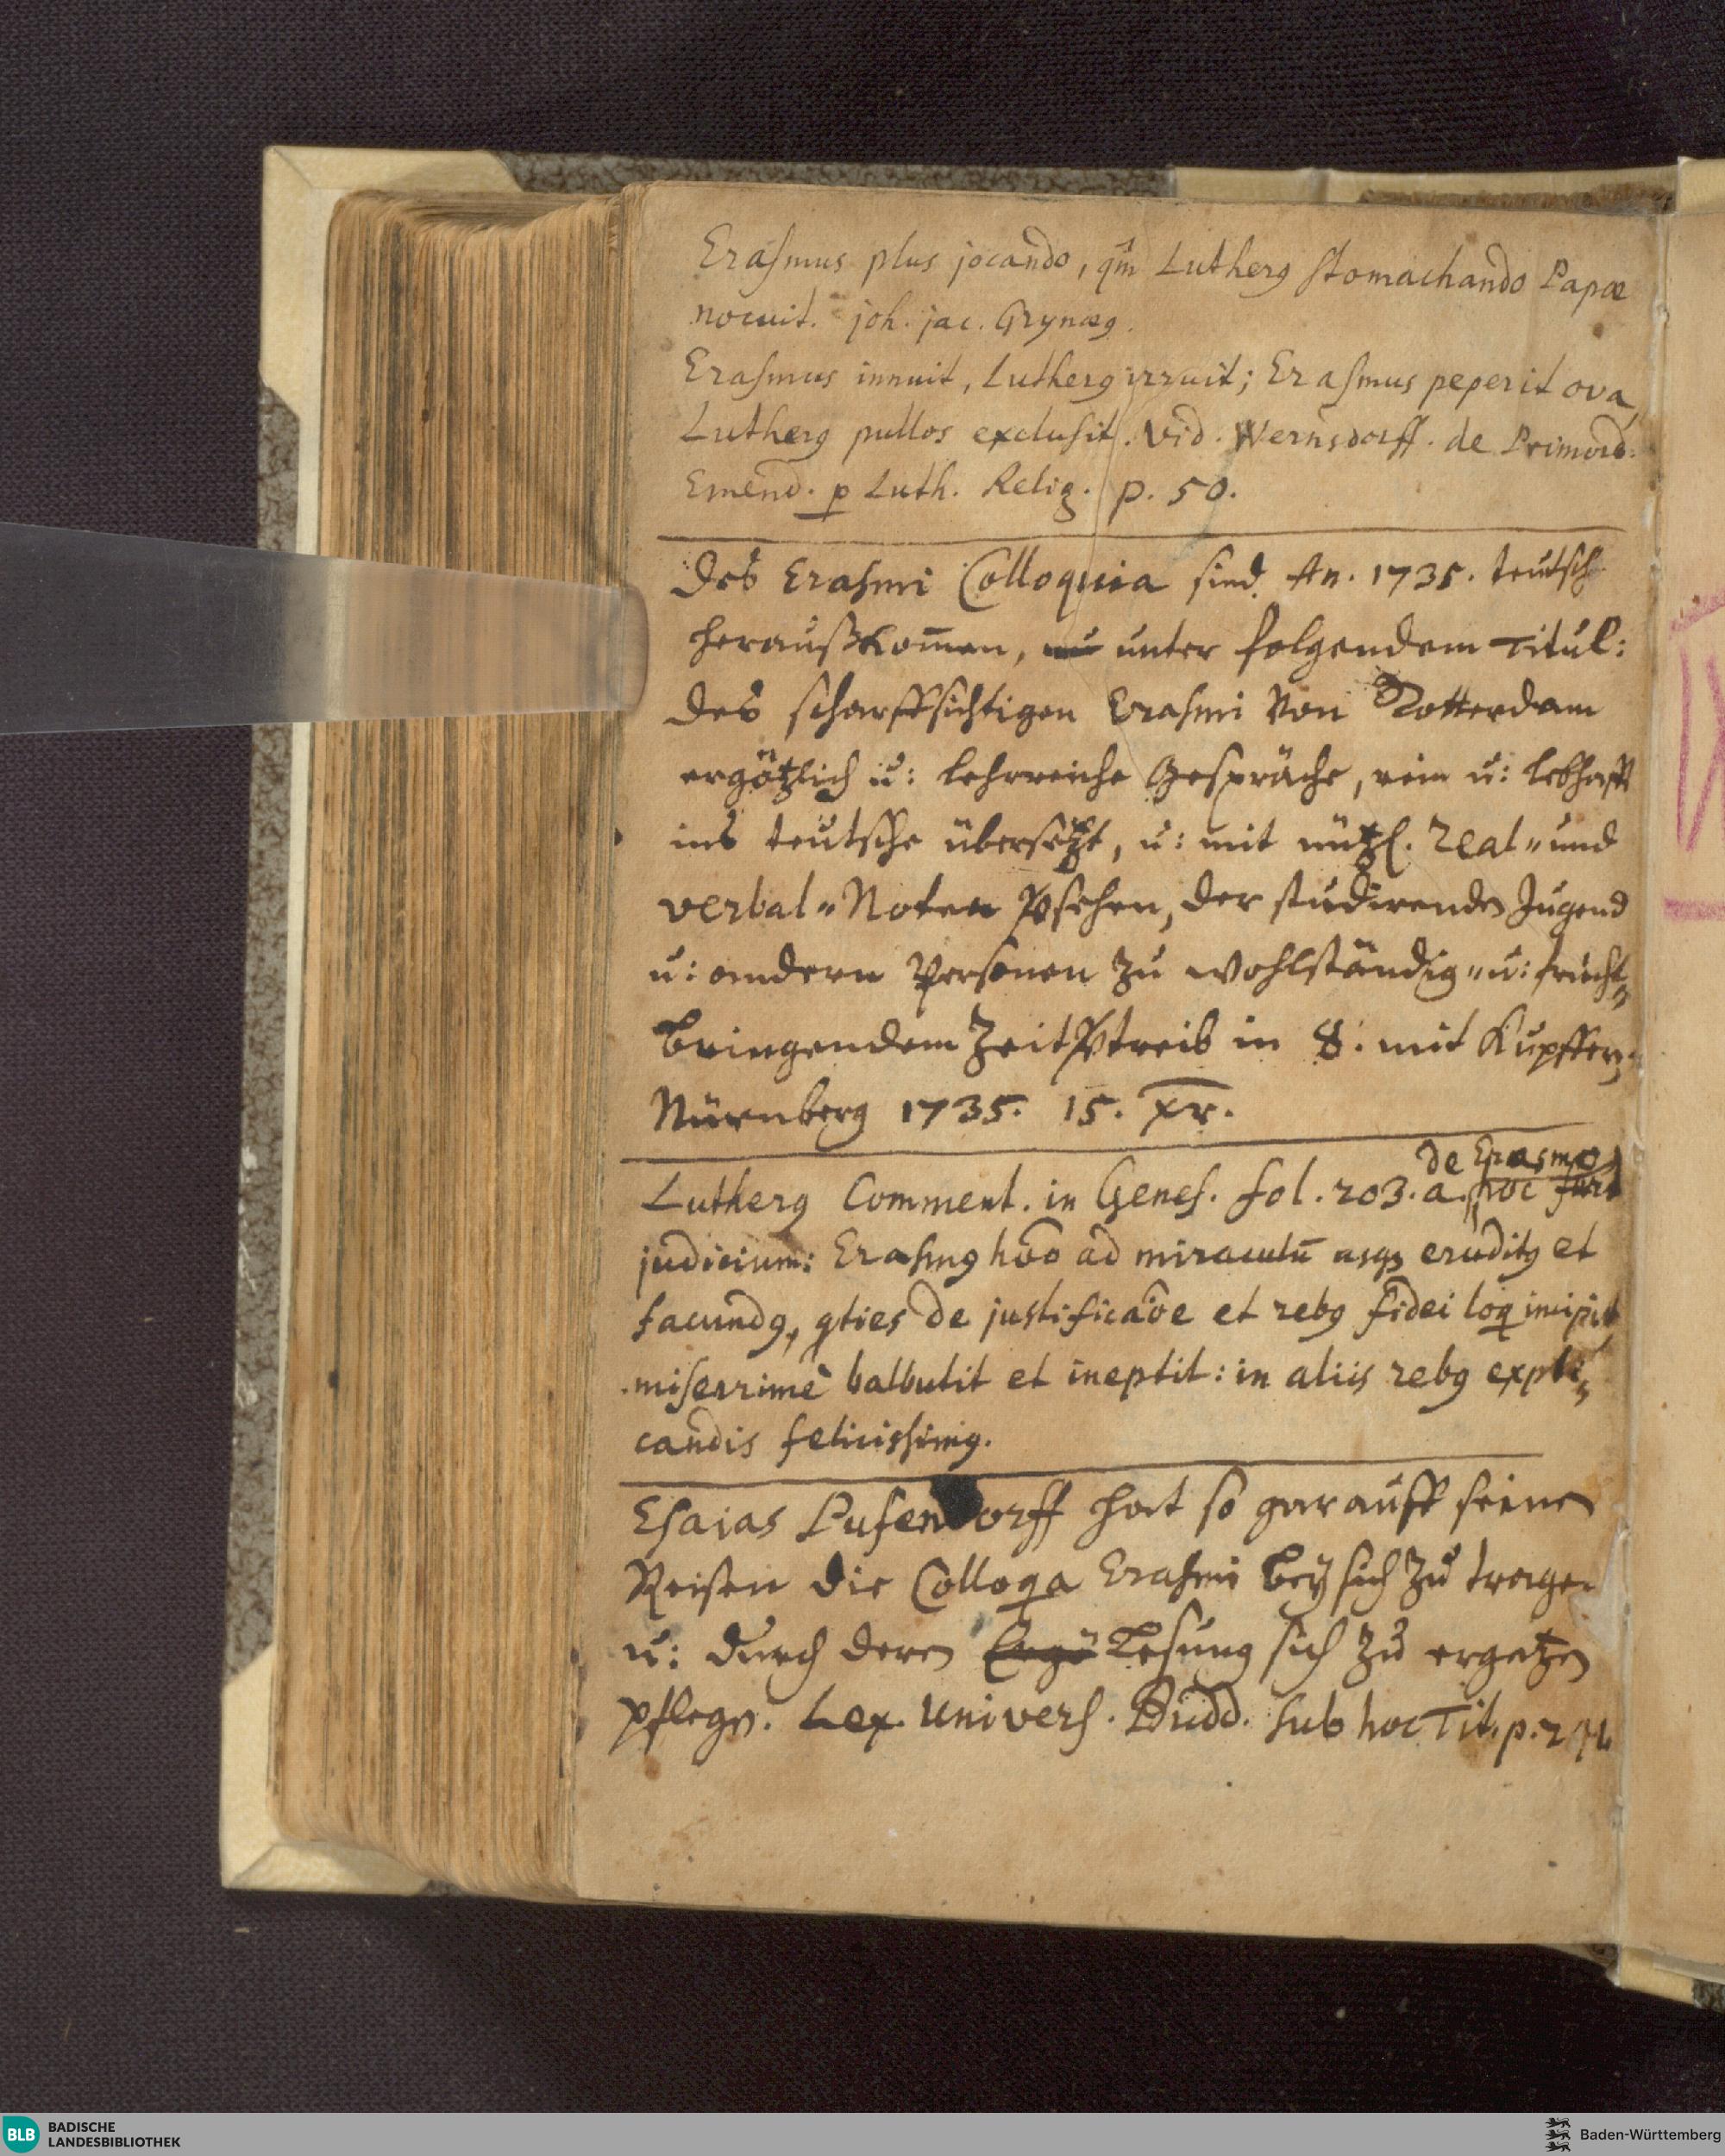 Erasmus plus jocando, qm̃ Lutherꝯ stomachando Papæ
nocuit. joh. jac. Grynæꝯ.
Erasmus innuit, Lutherꝯ irruit; Erasmus peperit ova,
Lutherꝯ pullos exclusit. vid. Wernsdorff. de Primord.
Emend. ꝑ Luth. Relig. p. 50.
Des Erasmi Colloquia sind An. 1735. teutsch
heraußkom̅en, unter folgendem Titul:
Des scharffsichtigen Erasmi von Rotterdam
ergötzlich u: lehrreiche Gespräche, rein u: lebhafft
ins teutsche übersetzt, u: mit nützl. Real„und
verbal„Noten vsehen, der studirenden Jugend
u: andern Personen zu wohlständig„u: frücht„
bringendem Zeitvtreib in 8. mit Kupffern
Nürnberg 1735. 15. xr.
de Erasmo
Lutherꝯ Comment. in Genes. fol. 203. a. hoc fert
judicium: Erasmꝯ hõo ad miraculū usqꝫ eruditꝯ et
facundꝯ, qties de justificaõe et rebꝯ fidei loq incipit
miserrimè balbutit et ineptit: in aliis rebꝯ expli„
candis felicissimꝯ.
Esaias Pufendorff hat so gar auff seinen
Reisen die Colloqa Erasmi bey sich zu tragen
u: durch deren Ergö Lesung sich zu ergetzen
pflegen. Lex. Univers. Budd. sub hoc Tit. p.
BLB BADISCHE
LANDESBIBLIOTHEK
Baden-Württemberg